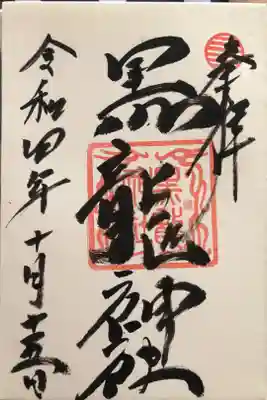 奉拝
黒龍神社
令和四年十月十五日